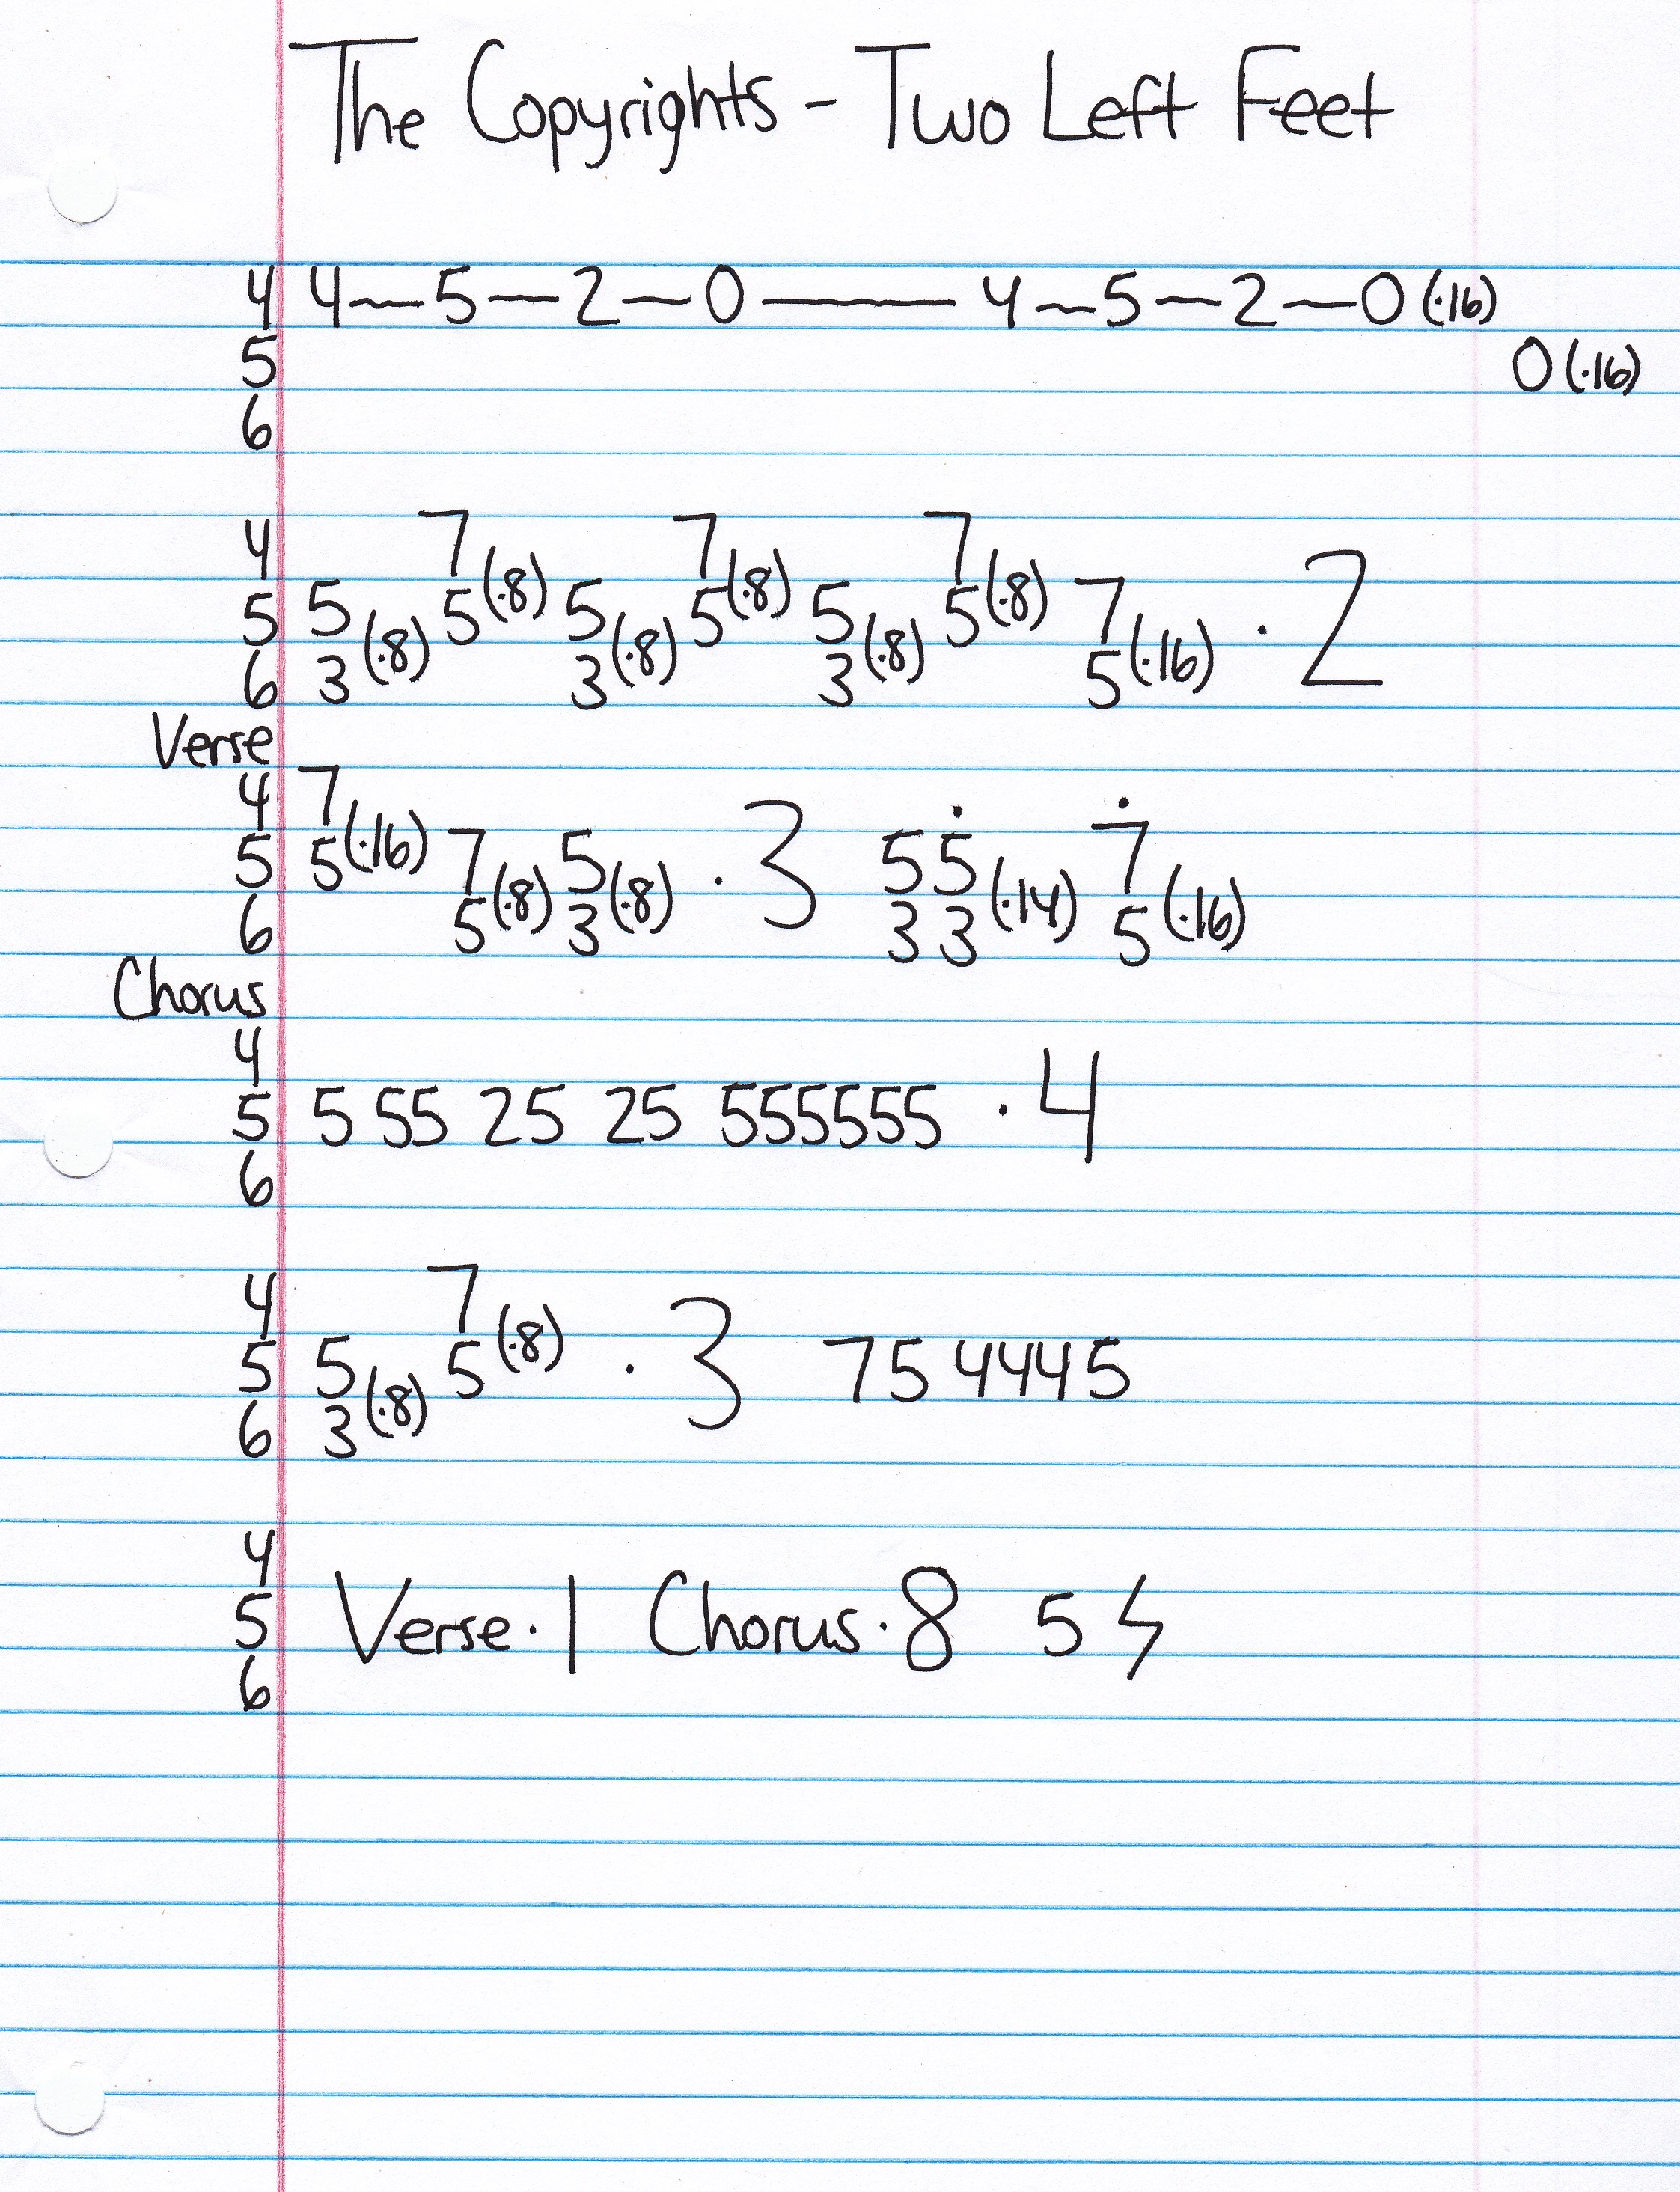 The Copyrights - Two Left Feet
4 4~5—2—0——4~5—2—0(·16)
5 0(·16)
6
4 7 7 7
5 5 5(·8) 5 5(·8) 5 5(·8) 7 · 2
6 3(·8) 3(·8) 3(·8) 5(·16)
Verse
4 7
5 5(·16) 7 5 · 3 5 5̇ 7̇
6 5(·8) 3(·8) 3 3(·14) 5(·16)
Chorus
4
5 5 55 25 25 555555 · 4
6
4 7
5 5 5(·8) · 3 75 4445
6 3(·8)
4
5 Verse·1 Chorus·8 5 ϟ
6